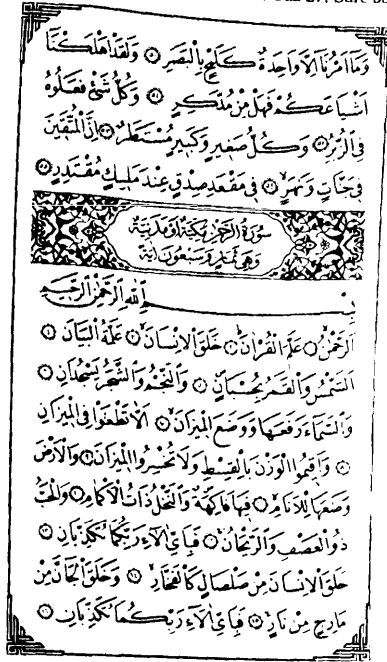 وَمَا اَمْرُنَا اِلَّا وَاحِدَةٌ كَلَمْحٍ بِالْبَصَرِ ۝ وَلَقَدْ اَهْلَكْنَا
اَشْيَاعَكُمْ فَهَلْ مِنْ مُدَّكِرٍ ۝ وَكُلُّ شَيْءٍ فَعَلُوهُ
فِي الزُّبُرِ ۝ وَكُلُّ صَغِيرٍ وَكَبِيرٍ مُسْتَطَرٌ ۝ اِنَّ الْمُتَّقِينَ
فِي جَنَّاتٍ وَنَهَرٍ ۝ فِي مَقْعَدِ صِدْقٍ عِنْدَ مَلِيكٍ مُقْتَدِرٍ ۝
سُورَةُ الرَّحْمٰنِ مَكِّيَّةٌ اَوْ مَدَنِيَّةٌ
وَهِيَ ثَمَانٍ وَسَبْعُونَ اٰيَةً
بِسْمِ اللّٰهِ الرَّحْمٰنِ الرَّحِيمِ
اَلرَّحْمٰنُ ۝ عَلَّمَ الْقُرْاٰنَ ۝ خَلَقَ الْاِنْسَانَ ۝ عَلَّمَهُ الْبَيَانَ ۝
اَلشَّمْسُ وَالْقَمَرُ بِحُسْبَانٍ ۝ وَالنَّجْمُ وَالشَّجَرُ يَسْجُدَانِ ۝
وَالسَّمَاءَ رَفَعَهَا وَوَضَعَ الْمِيزَانَ ۝ اَلَّا تَطْغَوْا فِي الْمِيزَانِ
۝ وَاَقِيمُوا الْوَزْنَ بِالْقِسْطِ وَلَا تُخْسِرُوا الْمِيزَانَ ۝ وَالْاَرْضَ
وَضَعَهَا لِلْاَنَامِ ۝ فِيهَا فَاكِهَةٌ وَالنَّخْلُ ذَاتُ الْاَكْمَامِ ۝ وَالْحَبُّ
ذُو الْعَصْفِ وَالرَّيْحَانُ ۝ فَبِاَيِّ اٰلَاءِ رَبِّكُمَا تُكَذِّبَانِ ۝
خَلَقَ الْاِنْسَانَ مِنْ صَلْصَالٍ كَالْفَخَّارِ ۝ وَخَلَقَ الْجَانَّ مِنْ
مَارِجٍ مِنْ نَارٍ ۝ فَبِاَيِّ اٰلَاءِ رَبِّكُمَا تُكَذِّبَانِ ۝